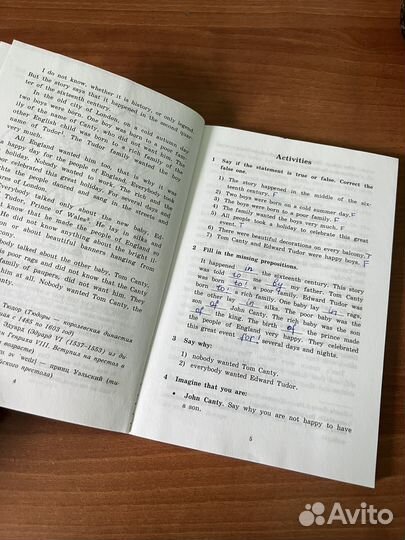 I do not know, whether it is history, or only legend.
But the story says that it happened in the second quar-
ter of the sixteenth century.
In the old city of London, on a cold autumn day
two boys were born. One boy was born to a poor fam-
ily of the name of Canty, who did not want him. The
other English child was born to a rich family of the
name of Tudor¹. The Tudor family wanted the boy
very much.
All England wanted him too, that is why it was
a happy day for the people of England. Everybody took
a holiday. Nobody wanted to work. The rich and the
poor celebrated this great holiday. For several days and
nights the people danced and sang in the streets and
squares of London.
Everybody talked only about the new baby, Ed-
ward Tudor, Prince of Wales². He lay in silks and
did not know that he made the people of England so
happy. He did not know anything about the bright
or about beautiful banners hanging from
body talked about the other baby, Tom Canty,
poor rags and did not know that Tom Canty
family of paupers, did not want him. They
him at all. Nobody wanted Tom Canty, the
Тюдор (Тюдоры — королевская династия
с 1485 по 1603 год)
Эдуард (Эдуард VI (1537–1553) из ди-
Генриха VIII. Вступил на престол в
возрасте)
v weilz] — принц Уэльский (ти-
престола)
4
Activities
1 Say if the statement is true or false. Correct the
false one.
1) The story happened in the middle of the six-
teenth century. F
2) Two boys were born on a cold summer day. F
3) The boys were born to a poor family. F
4) The family wanted the boys very much. F
5) All people took a holiday to celebrate this great
event. T
6) There were beautiful decorations on every balcony. T
7) Tom Canty and Edward Tudor were happy boys. F
2 Fill in the missing prepositions.
It happened in the sixteenth century. This story
was told to me by my father. Tom Canty
was born to! a poor family. Edward Tudor was
born to! a rich family. One baby lay in rags,
the other lay in silks. The poor baby was the
son of John Canty. The rich baby was the son
of the king. The birth of the prince made
the people of England very happy. They celebrated
this great event for! several days and nights.
3 Say why:
1) nobody wanted Tom Canty.
2) everybody wanted Edward Tudor.
4 Imagine that you are:
• John Canty. Say why you are not happy to have
a son.
5
Avito